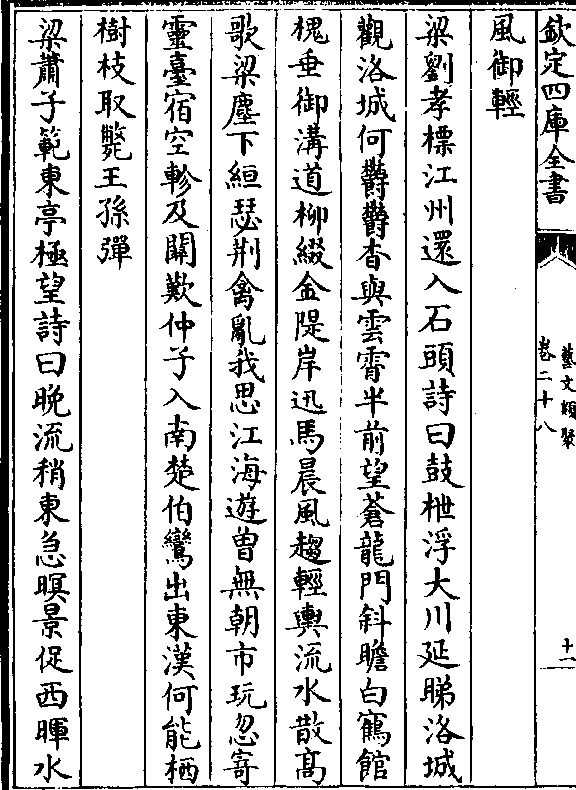 欽定四庫全書
藝文類聚
卷二十八
十一
風御輕
梁劉孝標江州還入石頭詩曰鼓枻浮大川延睇洛城
觀洛城何欝欝杳與雲霄半前望蒼龍門斜瞻白鶴館
槐垂御溝道柳綴金隄岸迅馬晨風趨輕輿流水散髙
歌梁塵下絙瑟荆禽亂我思江海遊曽無朝市玩忽寄
靈臺宿空軫及關歎仲子入南楚伯鸞出東漢何能栖
樹枝取斃王孫彈
梁蕭子範東亭極望詩曰晩流稍東急暝景促西暉水